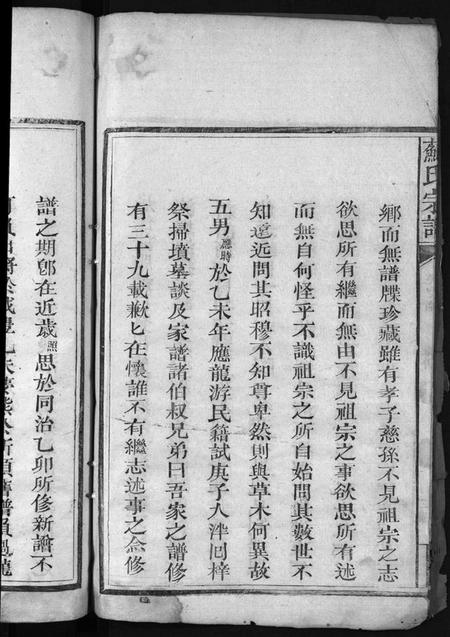 蘇氏宗譜
鄉而無譜牒珍藏雖有孝子慈孫不見祖宗之志
欲思所有繼而無由不見祖宗之事欲思所有述
而無自何怪乎不識祖宗之所自始問其數世不
知遠近問其昭穆不知尊卑然則與草木何異故
五男應時於乙未年應龍游民籍試庚子入泮回梓
祭掃墳墓談及家譜諸伯叔兄弟曰吾家之譜修
有三十九載歉匕在懷誰不有繼志述事之念修
譜之期卽在近歲照思於同治乙卯所修新譜不